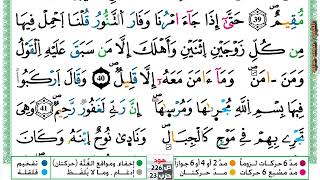 مُّقِيمٌ ﴿39﴾ حَتَّىٰٓ إِذَا جَآءَ أَمْرُنَا وَفَارَ ٱلتَّنُّورُ قُلْنَا ٱحْمِلْ فِيهَا
مِن كُلٍّ زَوْجَيْنِ ٱثْنَيْنِ وَأَهْلَكَ إِلَّا مَن سَبَقَ عَلَيْهِ ٱلْقَوْلُ
وَمَنْ ءَامَنَ ۚ وَمَآ ءَامَنَ مَعَهُۥٓ إِلَّا قَلِيلٌ ﴿40﴾ وَقَالَ ٱرْكَبُوا۟
فِيهَا بِسْمِ ٱللَّهِ مَجْر۪ىٰهَا وَمُرْسَىٰهَآ ۚ إِنَّ رَبِّى لَغَفُورٌ رَّحِيمٌ ﴿41﴾ وَهِىَ
تَجْرِى بِهِمْ فِى مَوْجٍ كَٱلْجِبَالِ وَنَادَىٰ نُوحٌ ٱبْنَهُۥ وَكَانَ
مدّ 6 حركات لزوماً مدّ 2 أو 4 أو 6 جوازاً هود 226 إخفاء، ومواقع الغُنَّة (حركتان) تفخيم
مدّ مشبع 6 حركات مدّ حركتان حزب 23 إدغام، وما لا يُلفَظ قلقلة